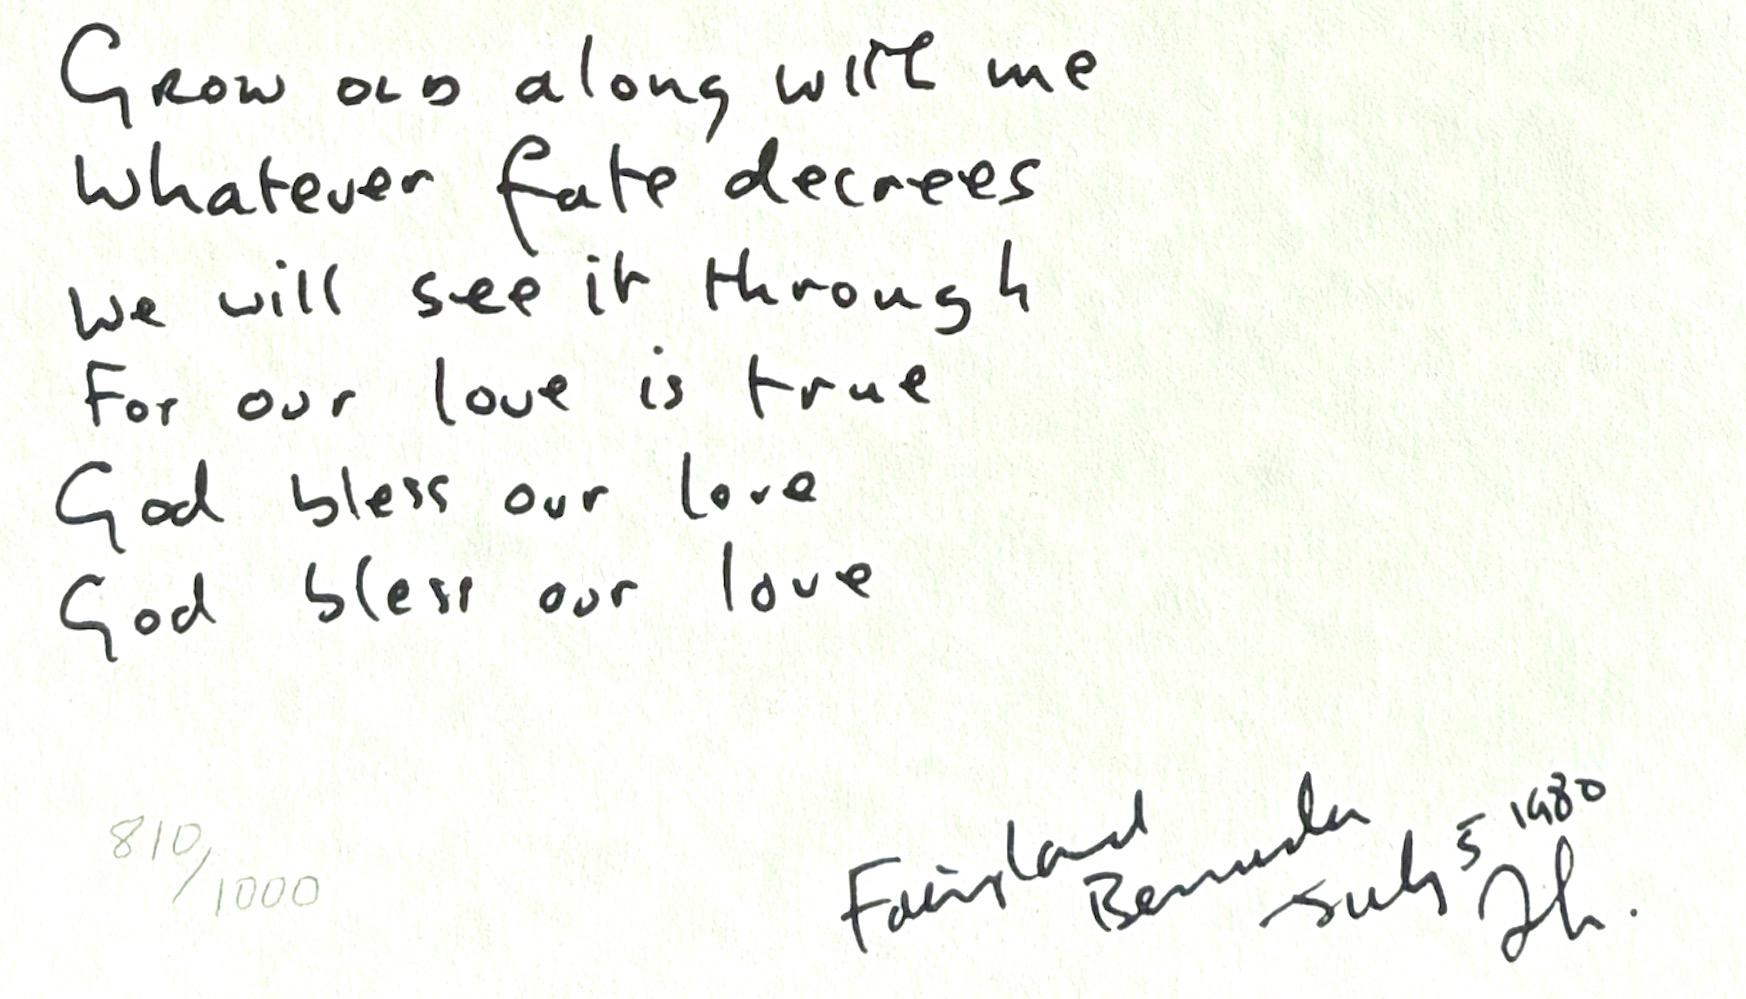 Grow old along with me
Whatever fate decrees
We will see it through
For our love is true
God bless our love
God bless our love
810/1000
Fairyland
Bermuda
July 5 1980